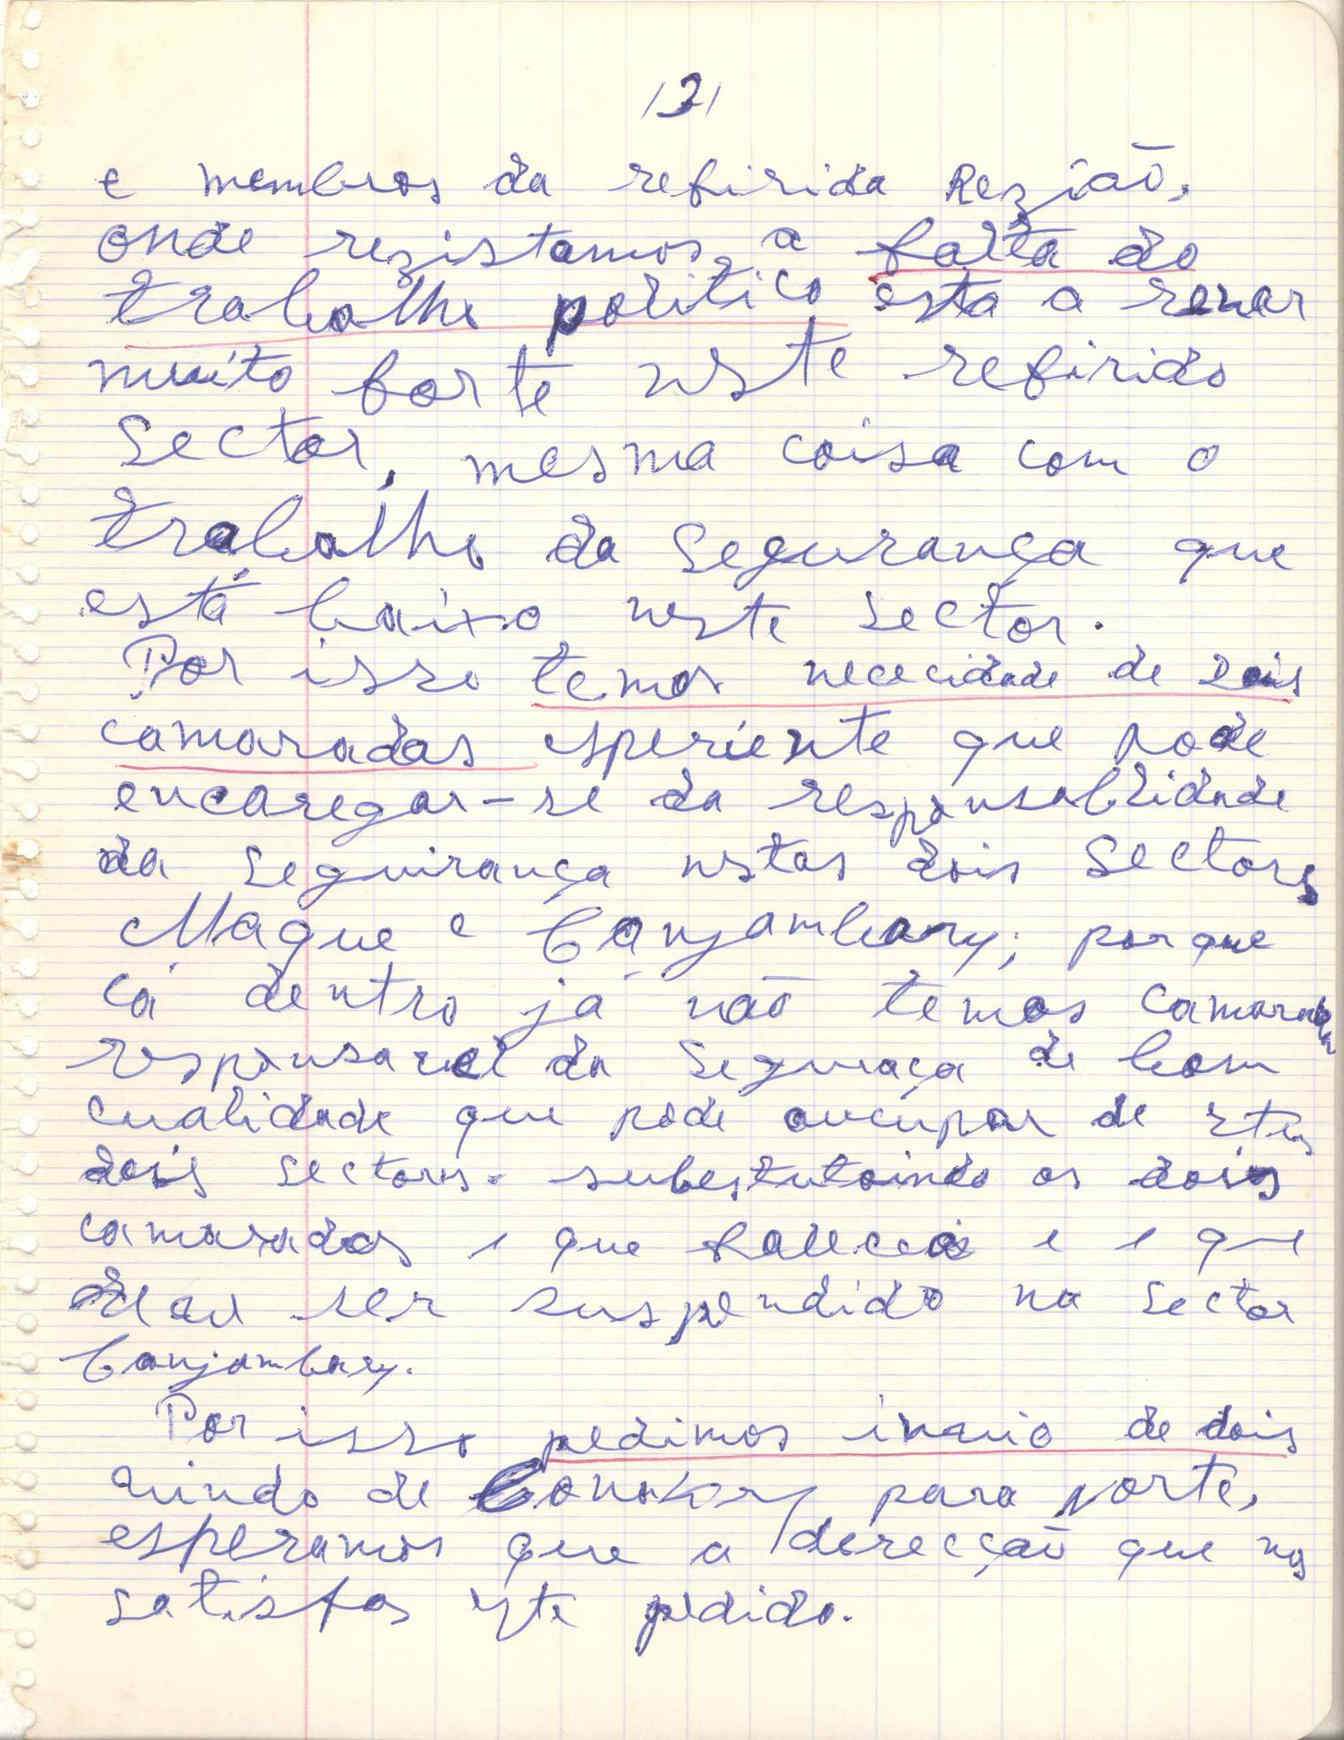 /2/
e membros da refirida Rezião,
onde rezistamos a falta do
trabalho politico esta a renar
muito forte neste refirido
Sector, mesma coisa com o
trabalho da Segurança que
está baixo neste Sector.
Por isso temos nececidade de Dois
camaradas esperiente que pode
encaregar-se da responsablidade
da Seguirança nstes dois Sectors
Maque e Canjambary; porque
cá dentro já não temos camarada
responsavel da Seguraça de bom
cualidade que pode oucupar de stes
dois Sectores. subestutoindo os dois
camaradas e que faleceo e e que
ser suspendido na Sector
Canjambary.
Por isso pedimos invio de dois
vindo de Conakry para norte,
esperamos que a direcção que nos
satisfas este pedido.